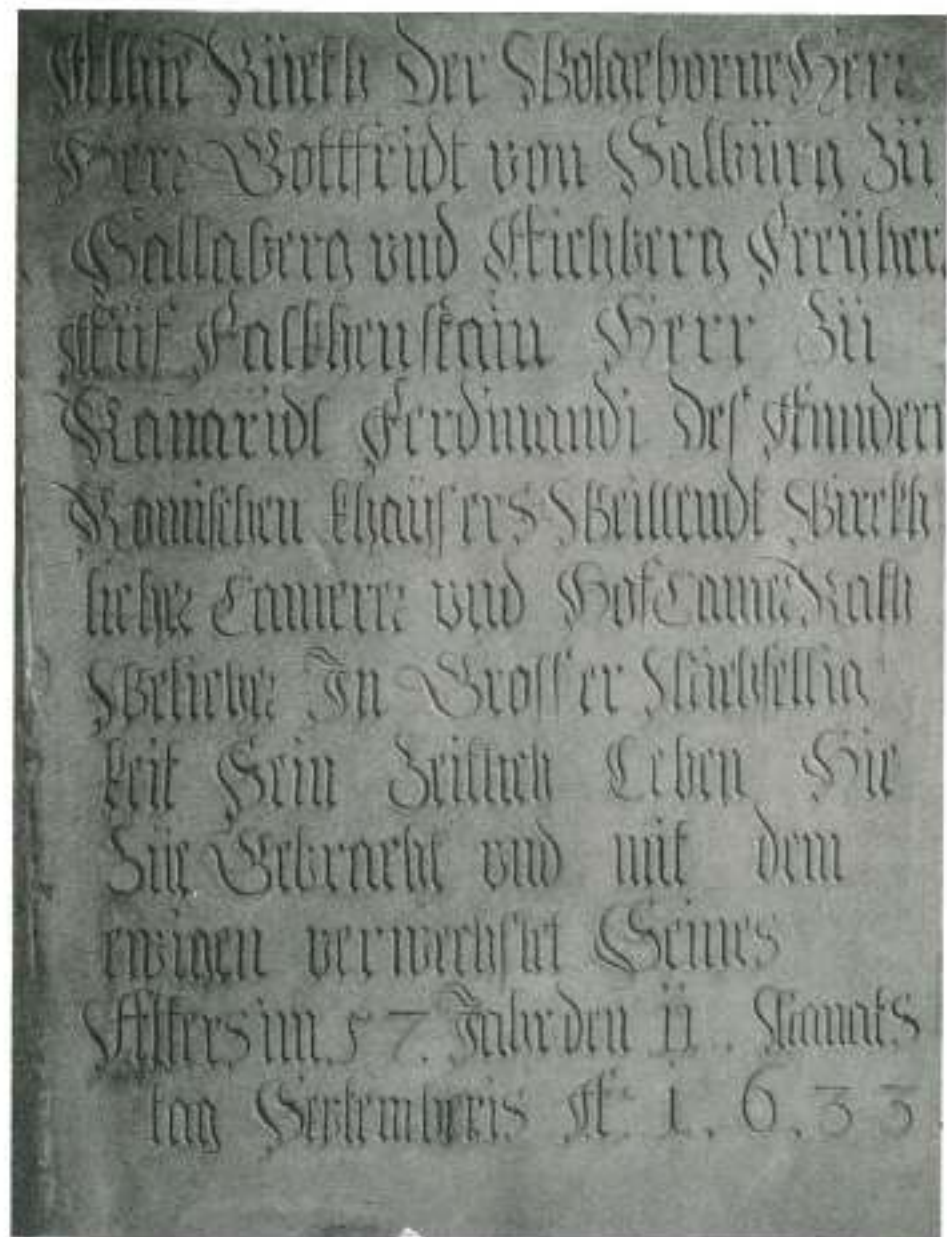 Alhie Rückh Der Wolgeborne Herr:
Herr: Gottfridt von Salbürg Zü
Sallaberg vnd Aichberg Freÿher
Aüf Falkhenstain Herr Zü
Ranaridl Ferdinandi Des Anndern
Romischen khaÿsers Weillendt Würckh
licher Camerer vnd Hof Camer Rath
Welicher In Grosser Müehsellig
keit Sein Zeitlich Leben Hie
Züe Gebracht vnd mit dem
ewigen verwechslet Seines
Alters im 57. Jahr den 11. Monats
tag Septemberis A: 1.6.33